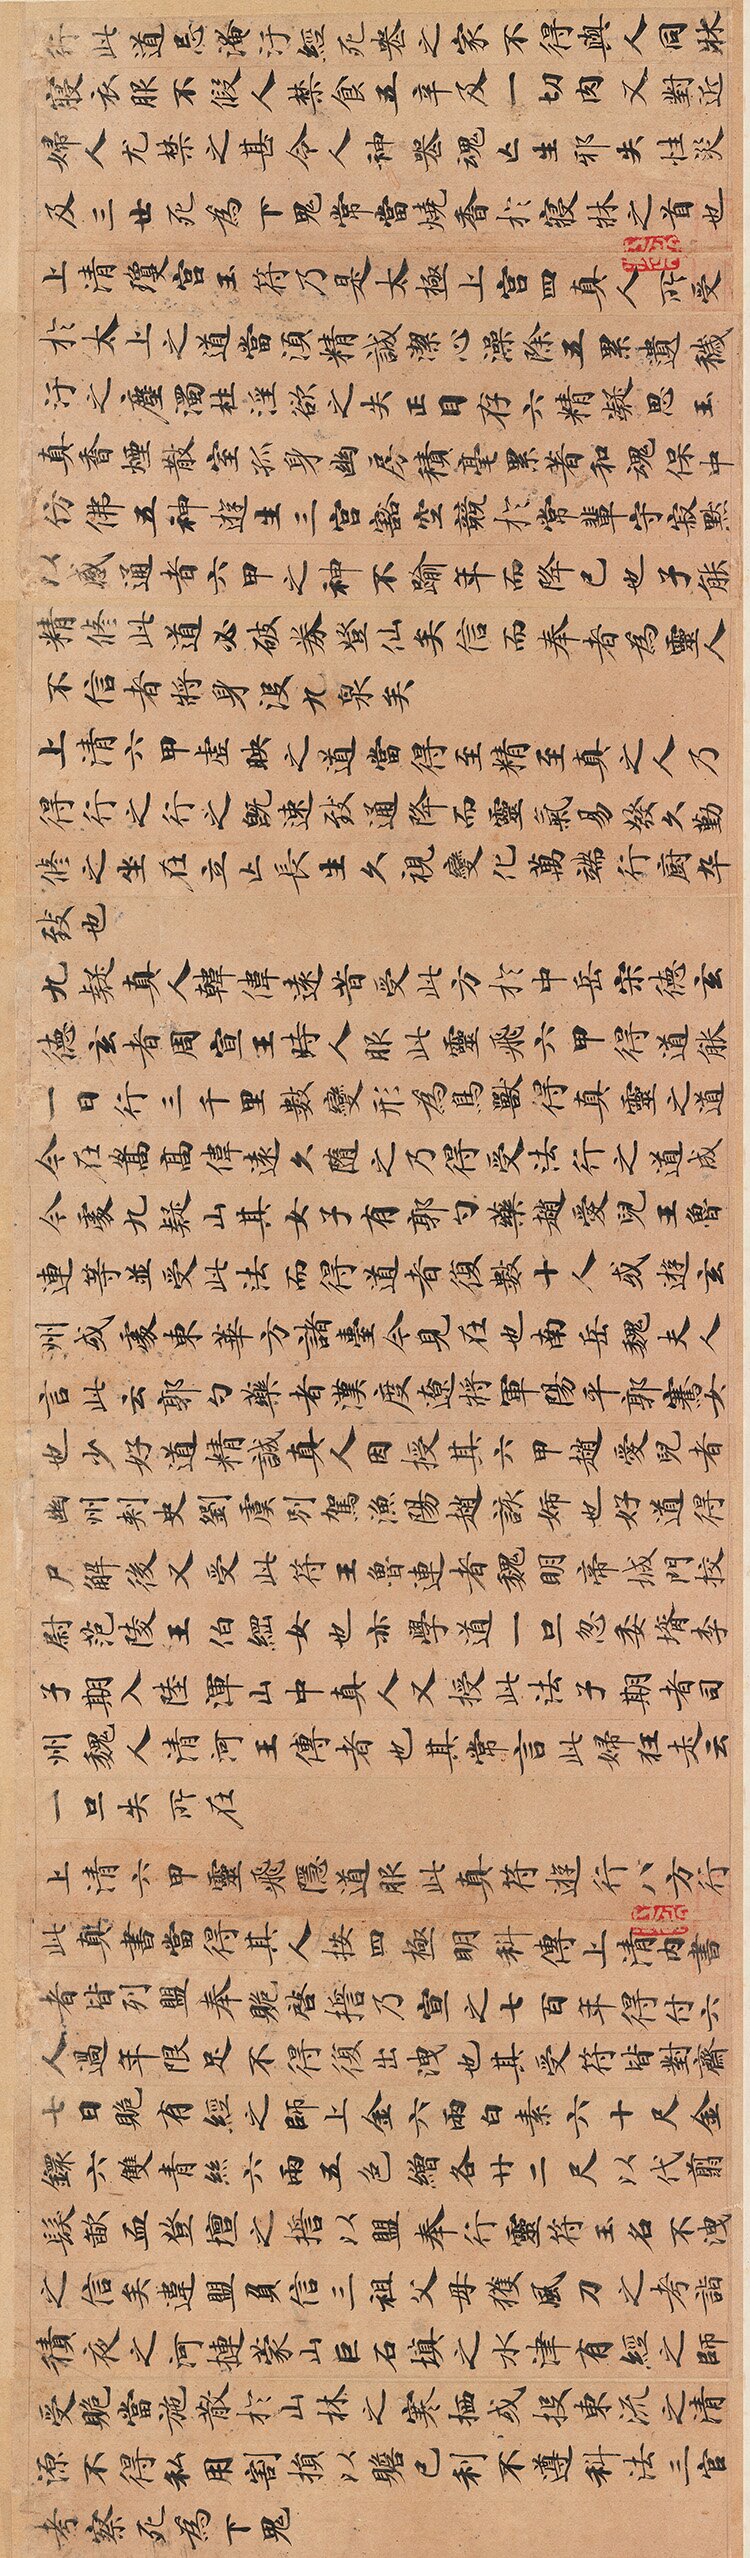 行此道忌淹汙經死喪之家不得與人同牀
寢衣服不假人禁食五辛及一切肉又對近
婦人尤禁之甚令人神喪魂亡生邪失性災
及三世死為下鬼常當燒香於寢牀之首也
上清瓊宮玉符乃是太極上宮四真人所受
於太上之道當須精誠潔心澡除五累遺穢
汙之塵濁杜淫欲之失正目存六精凝思玉
真香煙散室孤身幽房積毫累著和魂保中
仿佛五神遊生三宮豁空競於常輩守寂默
以感通者六甲之神不踰年而降已也子能
精修此道必破券登仙矣信而奉者為靈人
不信者將身沒九泉矣
上清六甲虛映之道當得至精至真之人乃
得行之行之既速致通降而靈氣易發久勤
修之坐在立亡長生久視變化萬端行廚卒
致也
九疑真人韓偉遠昔受此方於中岳宋德玄
德玄者周宣王時人服此靈飛六甲得道能
一日行三千里數變形為鳥獸得真靈之道
今在嵩高偉遠久隨之乃得受法行之道成
今處九疑山其女子有郭勺藥趙愛兒王魯
連等並受此法而得道者復數十人或遊玄
州或處東華方諸臺今見在也南岳魏夫人
言此云郭勺藥者漢度遼將軍陽平郭騫女
也少好道精誠真人因授其六甲趙愛兒者
幽州刺史劉虞別駕漁陽趙該姊也好道得
尸解後又受此符王魯連者魏明帝城門校
尉范陵王伯綱女也亦學道一旦忽委壻李
子期入陸渾山中真人又授此法子期者司
州魏人清河王傳者也其常言此婦狂走云
一旦失所在
上清六甲靈飛隱道服此真符遊行八方行
此真書當得其人按四極明科傳上清內書
者皆列盟奉贶啓誓乃宣之七百年得付六
人過年限足不得復出洩也其受符皆對齋
七日贶有經之師上金六兩白素六十尺金
鐶六雙青絲六兩五色繒各廿二尺以代翦
髮歃血登壇之誓以盟奉行靈符玉名不洩
之信矣違盟負信三祖父母獲風刀之考詣
積夜之河揵蒙山巨石填之水津有經之師
受贶當施散於山林之寒栖或投東流之清
源不得私用割損以贍己利不遵科法三官
考察死為下鬼